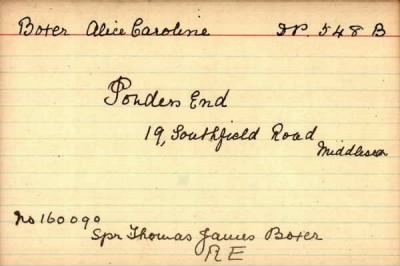 Boxer Alice Caroline DP. 548 B
Ponders End
19, Southfield Road
Middlesex
No 160090
Spr Thomas James Boxer
RE